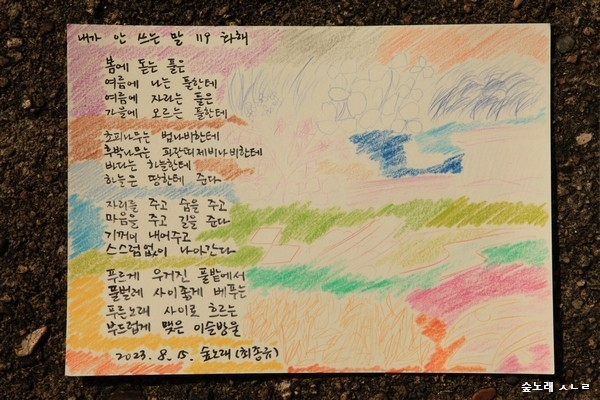 내가 안 쓰는 말 119 화해
봄에 돋는 풀은
여름에 나는 풀한테
여름에 자라는 들은
가을에 오르는 풀한테
초피나무는 범나비한테
후박나무는 파란띠제비나비한테
바다는 하늘한테
하늘은 땅한테 준다
자리를 주고 숨을 주고
마음을 주고 길을 준다
기꺼이 내어주고
스스럼없이 나아간다
푸르게 우거진 풀밭에서
풀벌레 사이좋게 베푸는
푸른노래 사이로 흐르는
부드럽게 맺은 이슬방울
2023. 8. 15. 숲노래 (최종규)
숲노래 ㅅㄴㄹ